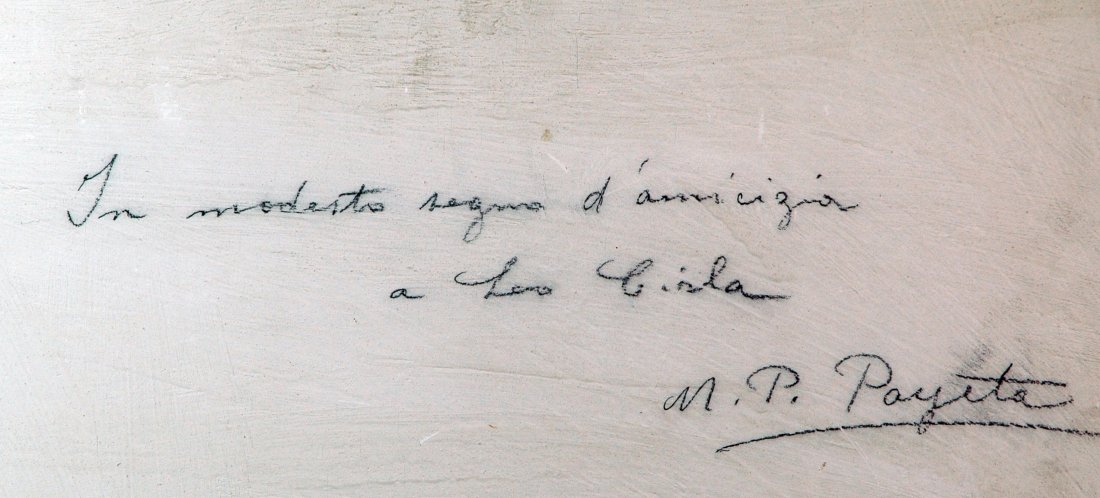 In modesto segno d'amicizia
a Leo Cirla
M. P. Payeta